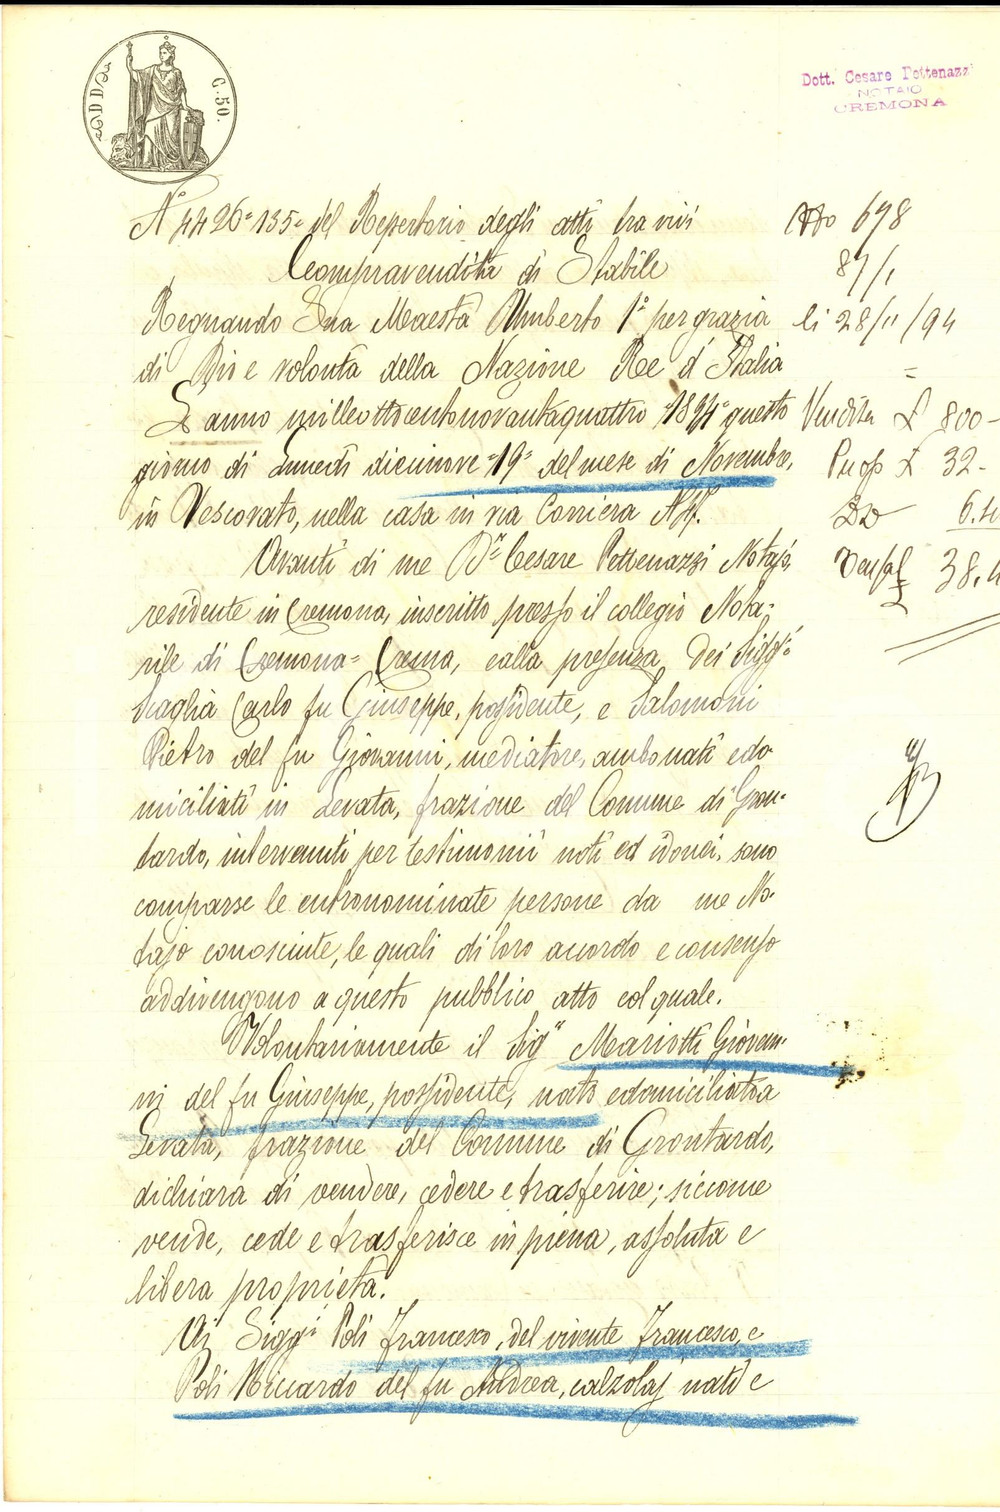 C. 50.
Dott. Cesare Pottenazzi
NOTAIO
CREMONA
N° 4426-135- del Repertorio degli atti tra vivi
Compravendita di Stabile
Regnando Sua Maestà Umberto 1° per grazia
di Dio e volontà della Nazione Re d'Italia
L'anno milleottocentonovantaquattro -1894- questo
giorno di Lunedì diecinove -19- del mese di Novembre,
in Vescovato, nella casa in via Corriera N° 4.
Avanti di me Dr. Cesare Pottenazzi Notajo,
residente in Cremona, inscritto presso il collegio Nota-
rile di Cremona-Crema, ealla presenza dei Siggi
Scaglia Carlo fu Giuseppe, possidente, e Salomoni
Pietro del fu Giovanni, mediatore, ambo nati e do-
miciliati in Levata, frazione del Comune di Gron-
tardo, intervenuti per testimonii noti ed idonei, sono
comparse le entronominate persone da me No-
tajo conosciute, le quali di loro accordo e consenso
addivengono a questo pubblico atto col quale.
Volontariamente il Sigr Mariotti Giovan-
ni del fu Giuseppe, possidente, nato e domiciliato a
Levata, frazione del Comune di Grontardo,
dichiara di vendere, cedere e trasferire; siccome
vende, cede e trasferisce in piena, assoluta e
libera proprietà.
Ai Siggi Poli Francesco, del vivente Francesco, e
Poli Riccardo del fu Andrea, calzolaj nati e
698
87/1
li 28/11/94
=
Vendita £ 800-
£ 32-
6.40
£ 38.4